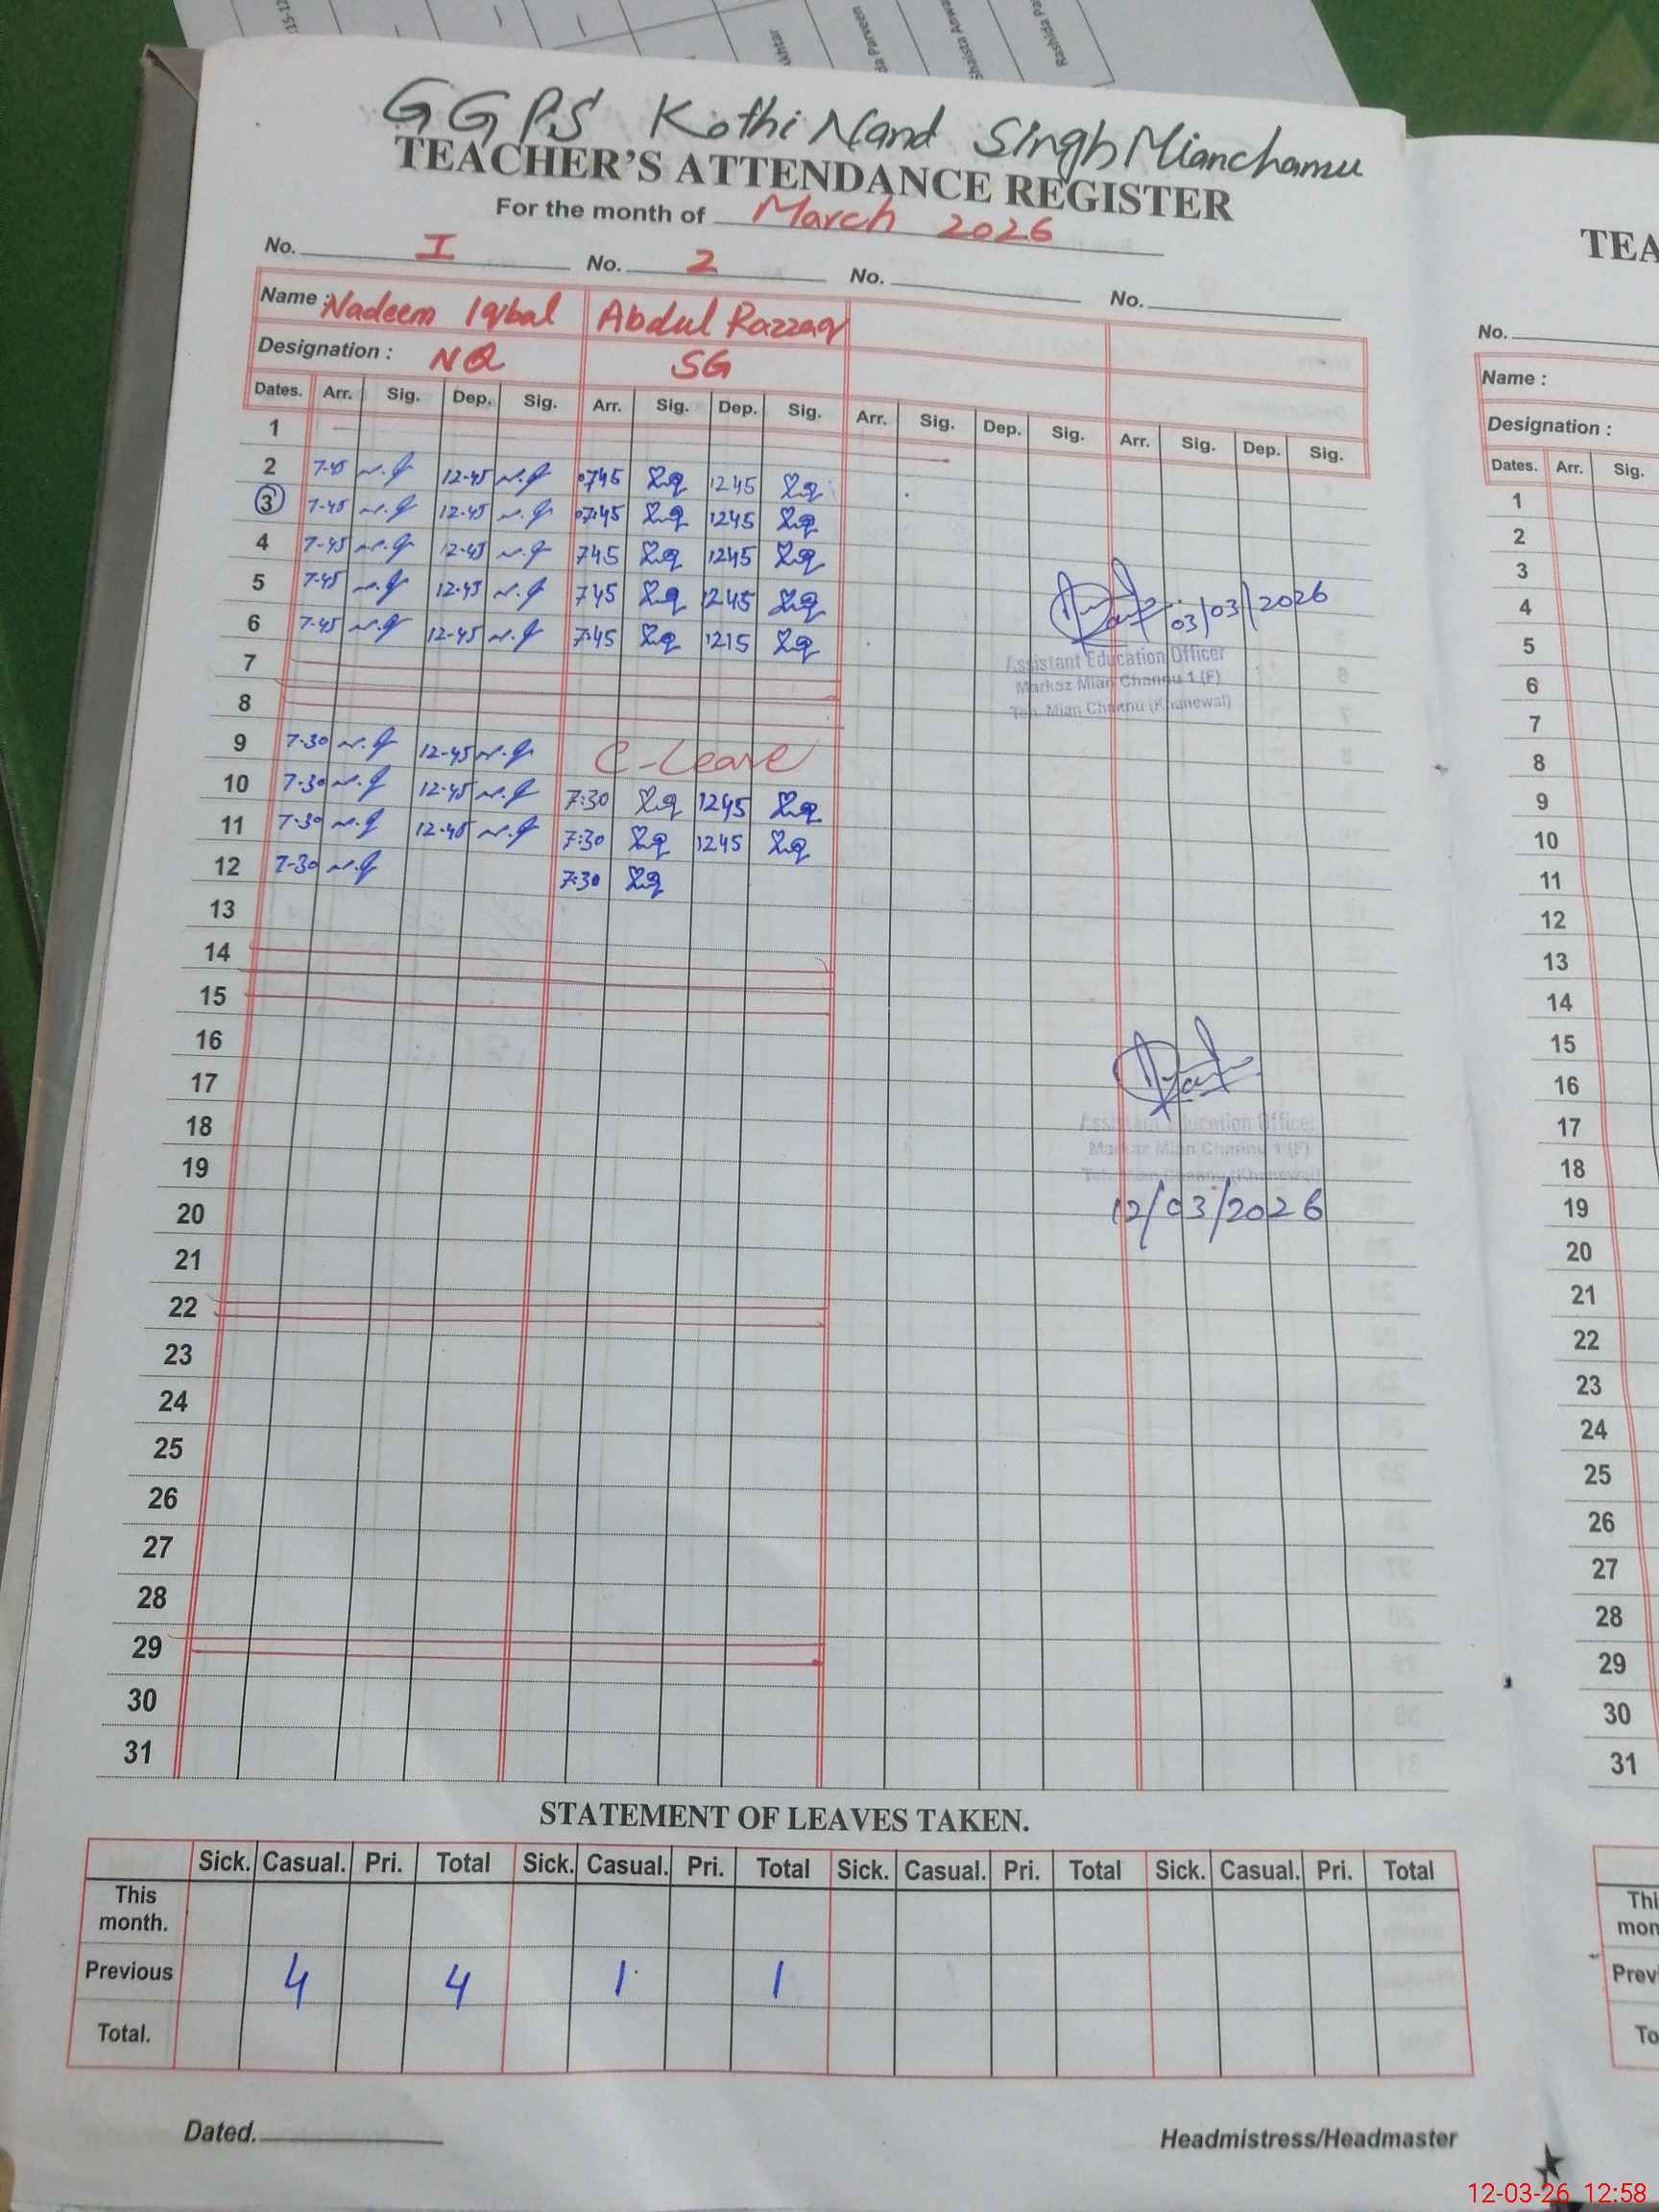 GGPS Kothi Nand Singh Mianchamu
TEACHER'S ATTENDANCE REGISTER
For the month of March 2026
No. I No. 2 No. No.
Name : Nadeem Iqbal Abdul Razzaq
Designation : NQ SG
Dates. Arr. Sig. Dep. Sig. Arr. Sig. Dep. Sig. Arr. Sig. Dep. Sig. Arr. Sig. Dep. Sig.
1
2 7-45 n.q 12-45 n.q 0745 1245
3 7-45 n.q 12-45 n.q 07:45 1245
4 7-45 n.q 12-45 n.q 745 1245
5 7-45 n.q 12-45 n.q 745 1245
6 7-45 n.q 12-45 n.q 7:45 1215
7
8
9 7-30 n.q 12-45 n.q C-Leave
10 7-30 n.q 12-45 n.q 7:30 1245
11 7-30 n.q 12-45 n.q 7:30 1245
12 7-30 n.q 7:30
13
14
15
16
17
18
19
20
21
22
23
24
25
26
27
28
29
30
31
03/03/2026
Assistant Education Officer
Markaz Mian Channu 1 (F)
Teh. Mian Channu (Khanewal)
Assistant Education Officer
Markaz Mian Channu 1 (F)
Teh. Mian Channu (Khanewal)
12/03/2026
STATEMENT OF LEAVES TAKEN.
Sick. Casual. Pri. Total Sick. Casual. Pri. Total Sick. Casual. Pri. Total Sick. Casual. Pri. Total
This month.
Previous 4 4 1 1
Total.
Dated. Headmistress/Headmaster
TEA
No.
Name :
Designation :
Dates. Arr. Sig.
1
2
3
4
5
6
7
8
9
10
11
12
13
14
15
16
17
18
19
20
21
22
23
24
25
26
27
28
29
30
31
Thi
mon
Prev
To
12-03-26 12:58